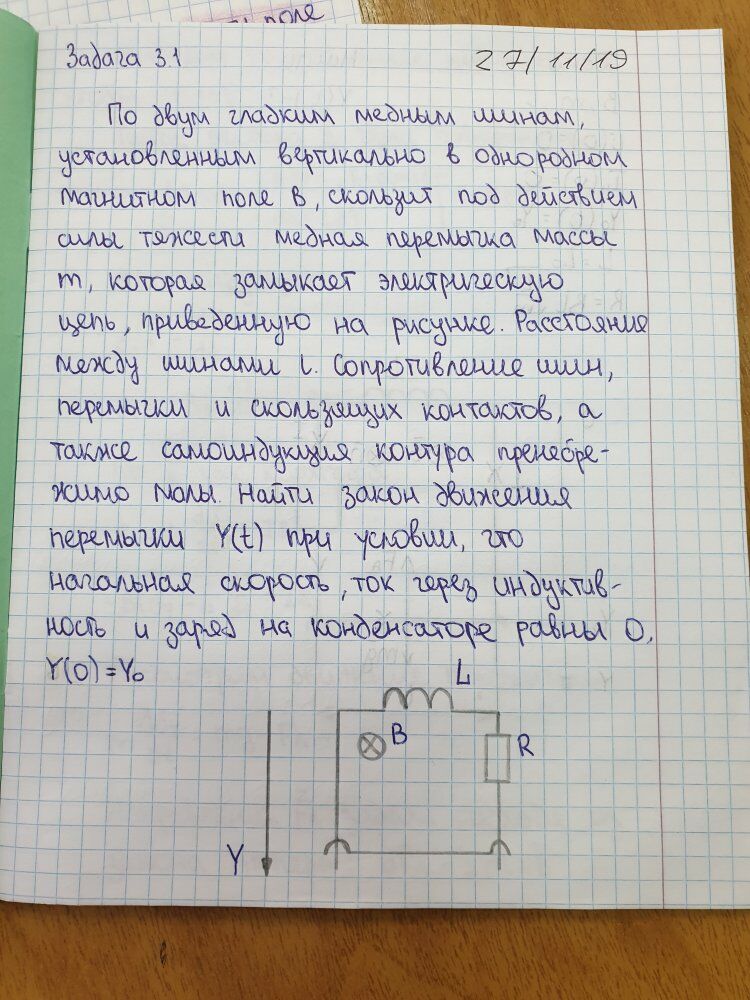 поле
Задача 3.1
27/11/19
По двум гладким медным шинам,
установленным вертикально в однородном
магнитном поле B, скользит под действием
силы тяжести медная перемычка массы
m, которая замыкает электрическую
цепь, приведенную на рисунке. Расстояние
между шинами l. Сопротивление шин,
перемычки и скользящих контактов, а
также самоиндукция контура пренебре-
жимо малы. Найти закон движения
перемычки Y(t) при условии, что
начальная скорость, ток через индуктив-
ность и заряд на конденсаторе равны 0,
Y(0)=Y₀
L
B
R
Y